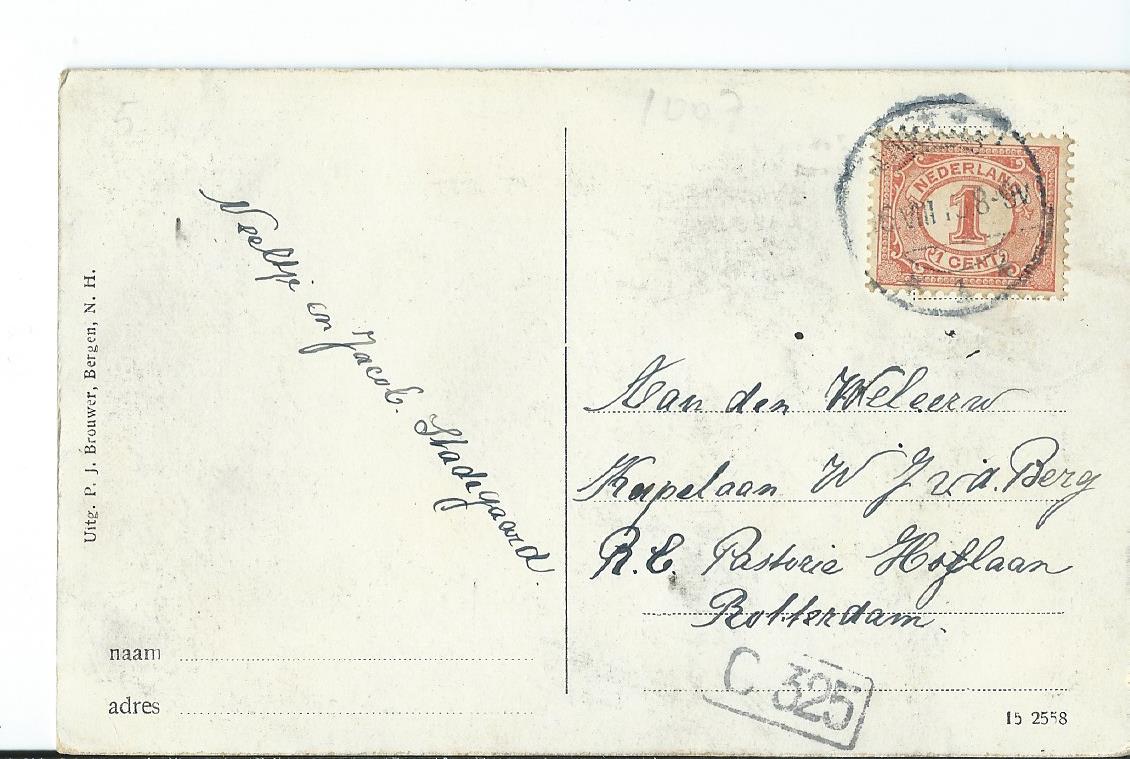 5
1007
NEDERLAND
1
1 CENT
VIII 8-9V
1
Neeltje en Jacob. Stadegaard.
Aan den Weleerw
Kapelaan W J v.d. Berg
R.C. Pastorie Hoflaan
Rotterdam.
C 325
Uitg. P. J. Brouwer, Bergen, N. H.
naam
adres
15 2558